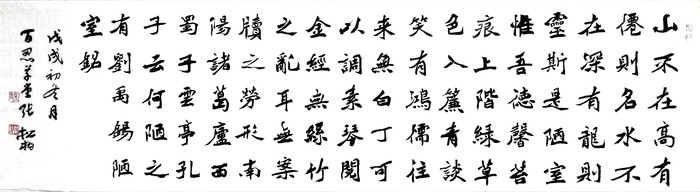 山不在高有
僊則名水不
在深有龍則
靈斯是陋室
惟吾德馨苔
痕上階綠草
色入簾青談
笑有鴻儒往
来無白丁可
以調素琴閱
金經無絲竹
之亂耳無案
牘之勞形南
陽諸葛廬西
蜀子雲亭孔
子云何陋之
有劉禹錫陋
室銘
戊戌初冬月
百忍草堂張松柏